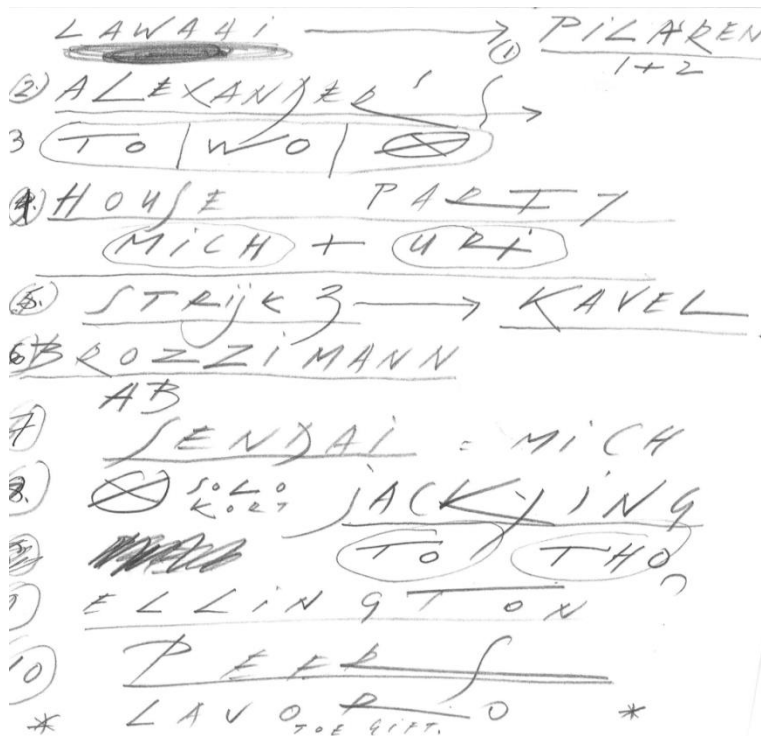 LAWAAi → ① PiLAREN
1+2
② ALEXANDER'S →
3 TO | WO | ⊗
4. HOUSE PARTY
MiCH + URi
5. STRijK 3 → KAVEL
6 BROZZiMANN
AB
7 SENDAi = MiCH
8. ⊗ SOLO KORT jACKyiNG
TO THO
9 ELLiNGTON
10 PEER'S
* LAVORO *
TOEGIFT.